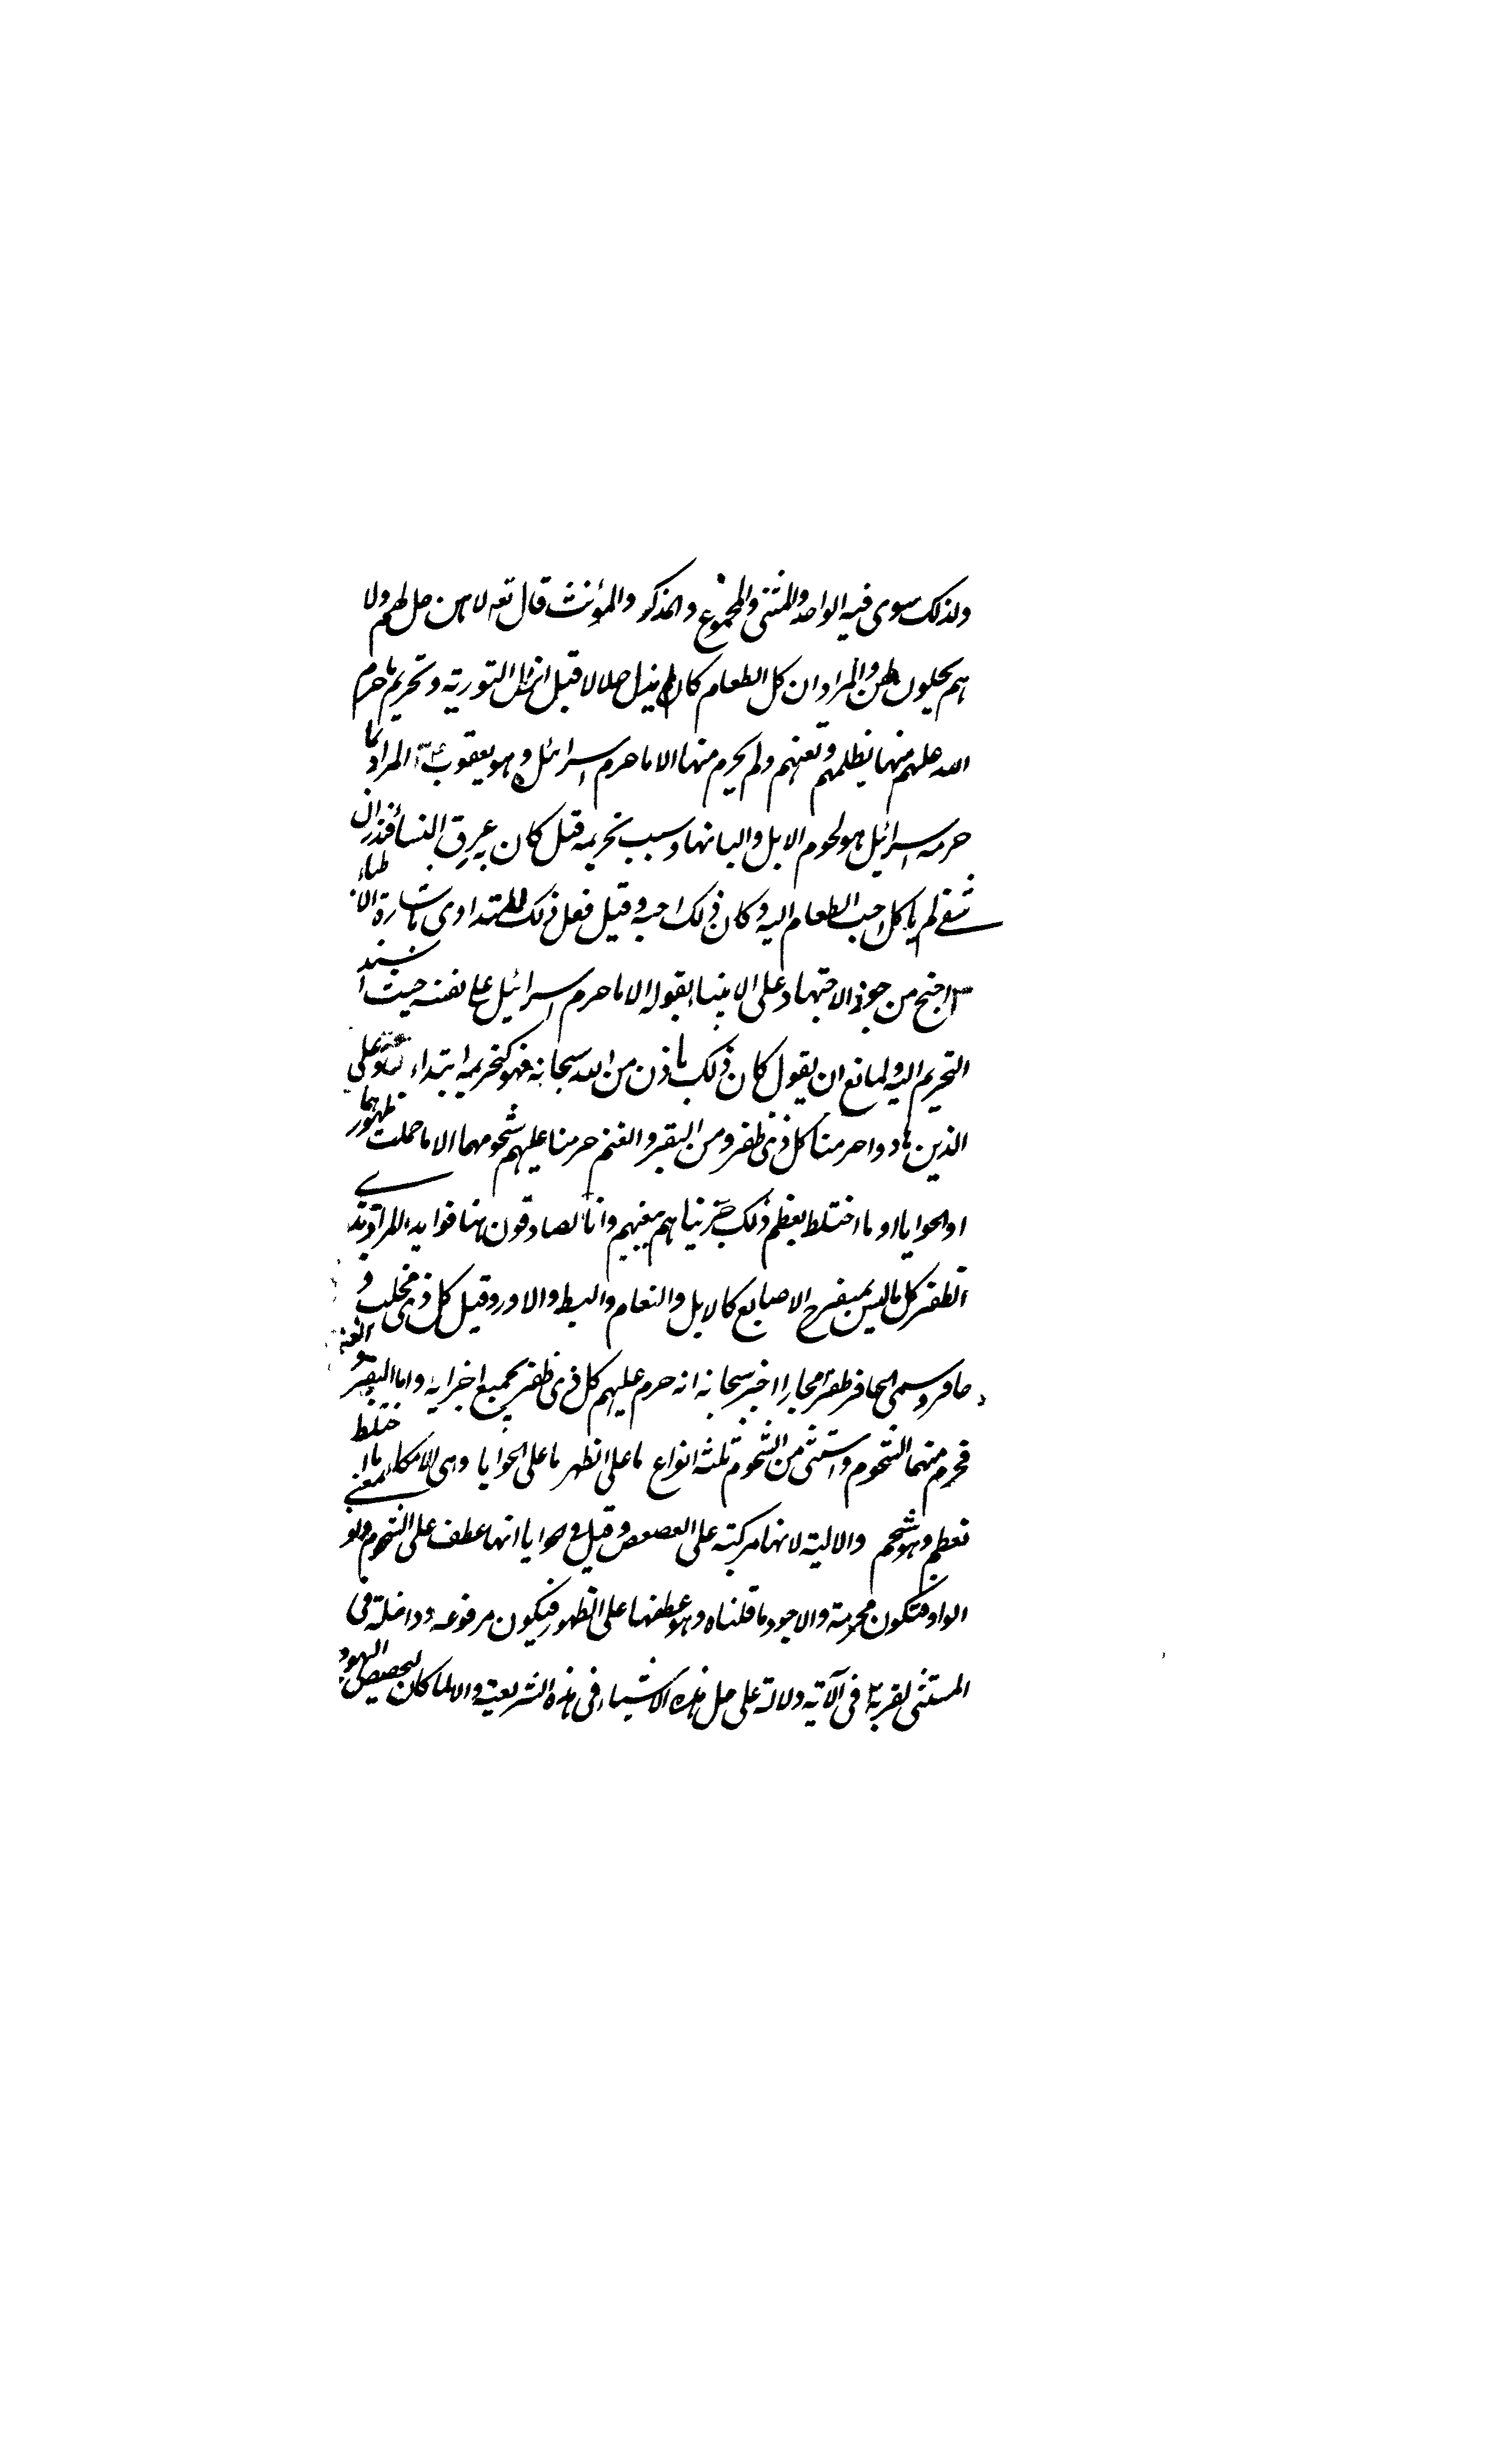 ولذلك سوى فيه الواحد والمثنى والمجموع والمذكر والمؤنث قال تعه لا هن حل لهم ولا
هم يحلون لهن والمراد ان كل الطعام كان لم يزل حلالا قبل انزال التورية وتحريم ما حرم
الله عليهم منها بظلمهم وبغيهم ولم يحرم منها الا ما حرم اسرائيل وهو يعقوب ع المراد بما
حرمه اسرائيل هو لحوم الابل والبانها وسبب تحريمه قيل كان به عرق النساء فنذر ان
شفى لم ياكل احب الطعام اليه وكان ذلك احبه وقيل فعل ذلك للتداوى باشارة الاطباء
احتج من جوز الاجتهاد على الانبياء بقوله الا ما حرم اسرائيل على نفسه حيث اسند
التحريم اليه ولمانع ان يقول كان ذلك باذن من الله سبحانه فهو كتحريمه ابتداء وعلى
الذين هادوا حرمنا كل ذى ظفر ومن البقر والغنم حرمنا عليهم شحومهما الا ما حملت ظهورهما
او الحوايا او ما اختلط بعظم ذلك جزيناهم ببغيهم وانا لصادقون هنا فوايد المراد بذى
الظفر كل ما ليس بمنفرج الاصابع كالابل والنعام والبط والاوز وقيل كل ذى مخلب و
حافر وسمى الحافر ظفرا مجازا اخبر سبحانه انه حرم عليهم كل ذى ظفر بجميع اجزايه واما البقر والغنم
فحرم منهما الشحوم واستثنى من الشحوم ثلثة انواع ما على الظهر ما على الحوايا وهى الامعاء ما اختلط
بعظم وهو شحم والالية لانها مركبة على العصعص وقيل فى حوايا انها عطف على الشحوم واو بمعنى
الواو فتكون محرمة والاجود ما قلناه وهو عطفها على الظهور فيكون مرفوعه وداخلة فى
المستثنى لقربه فى الآية دلالة على حل هذه الاشياء فى هذه الشريعة والا لما كان لتخصيص اليهود